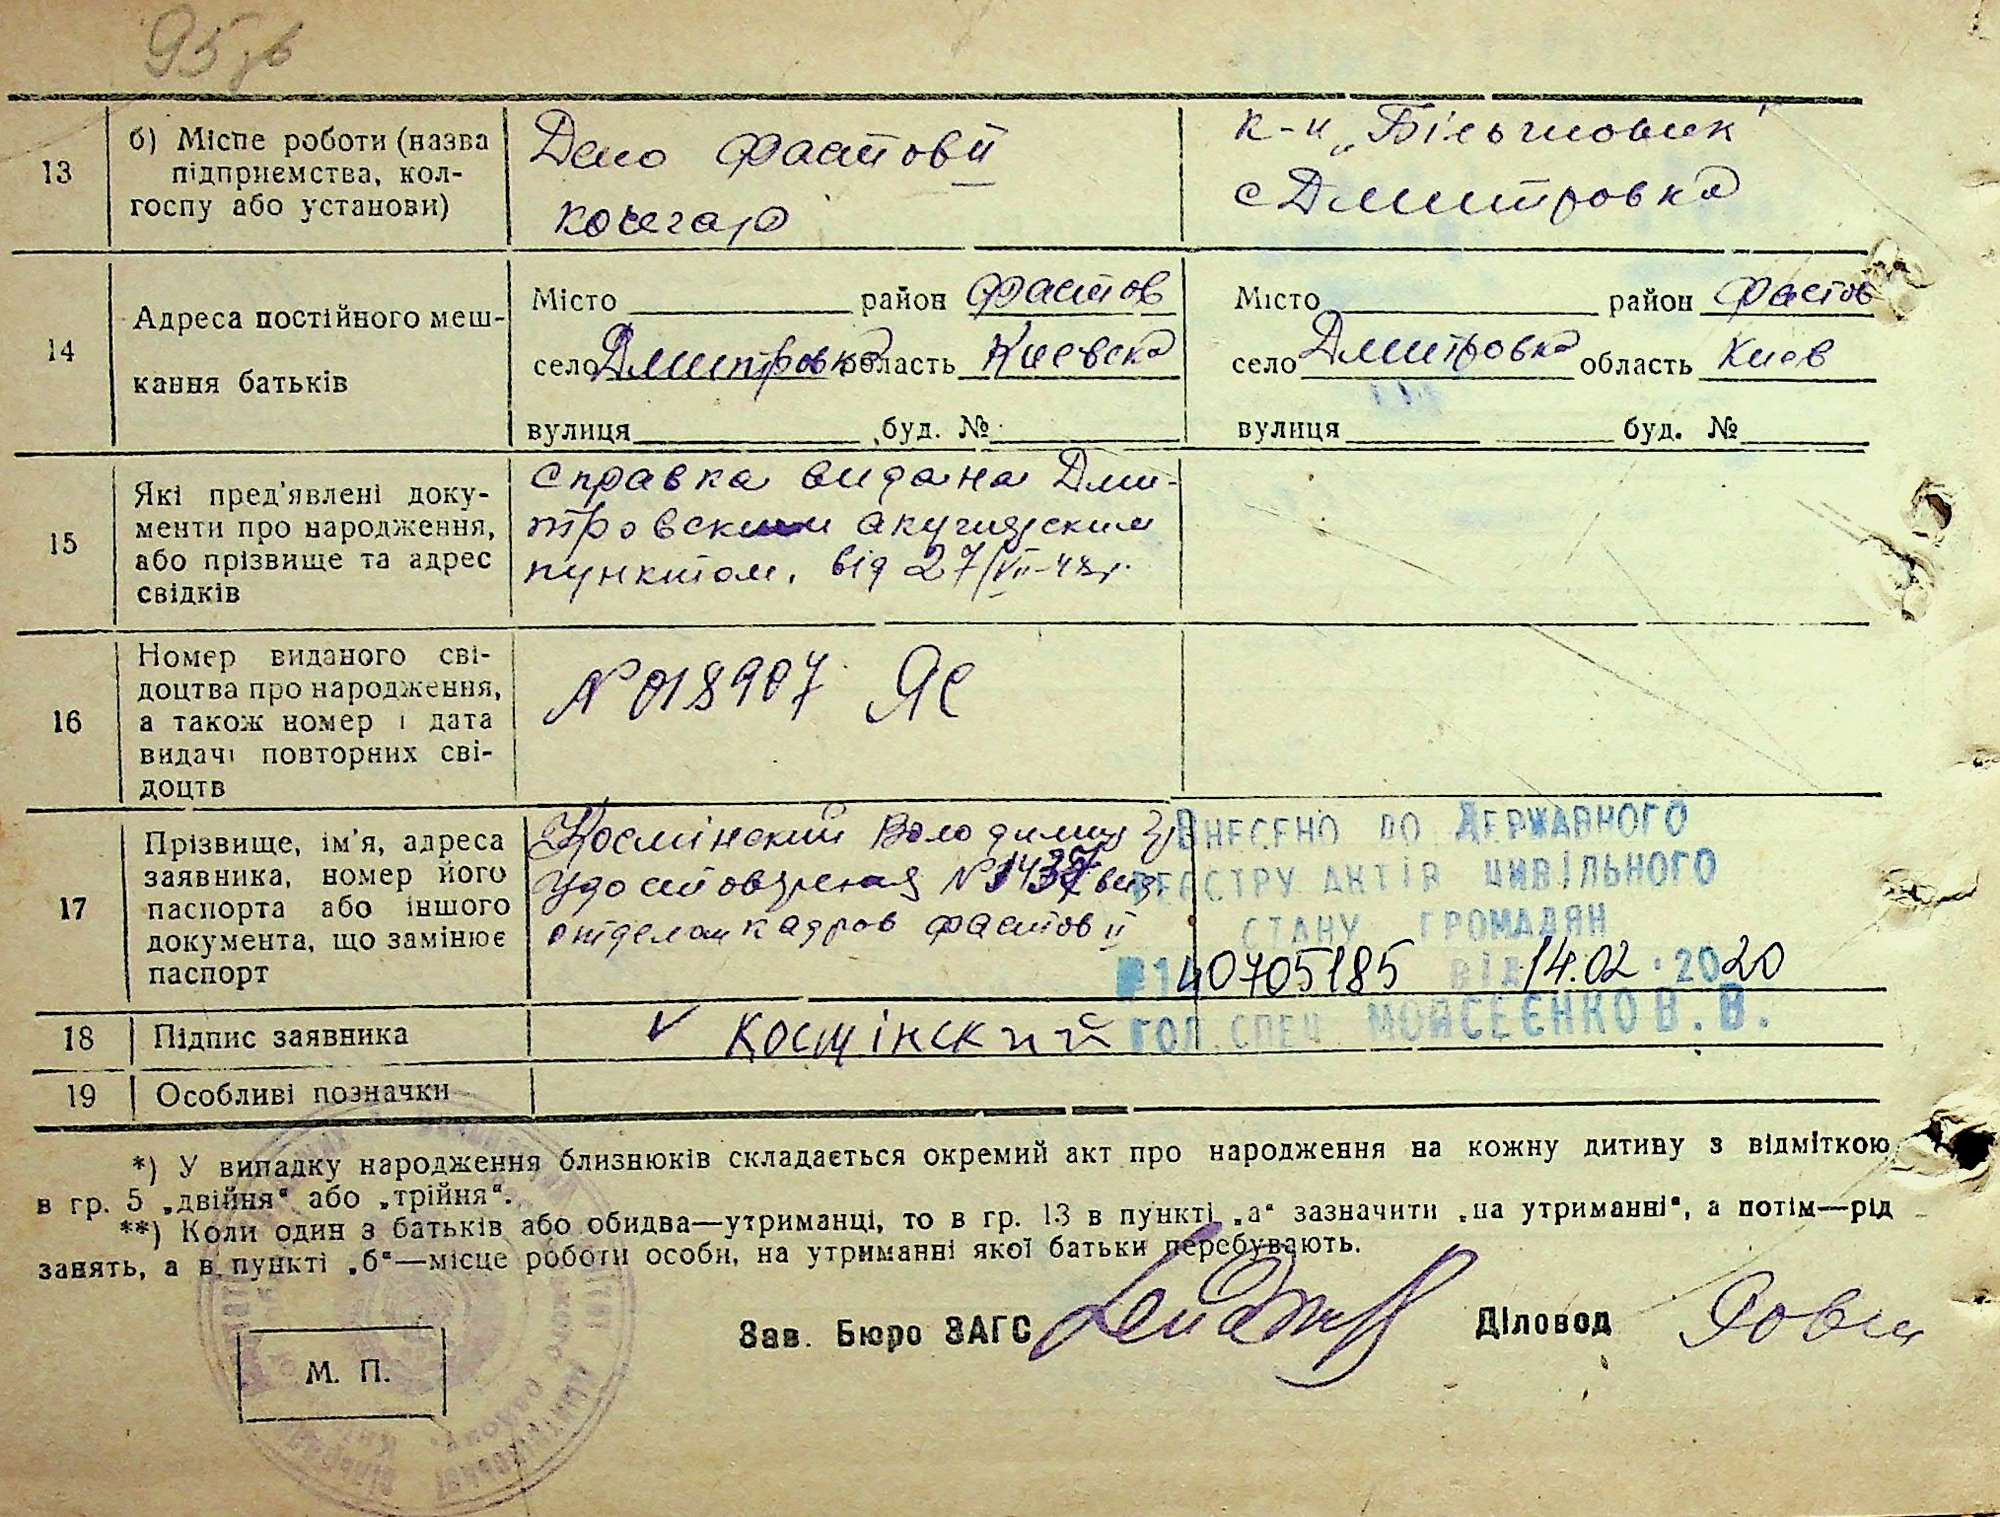 95 зв
13
б) Місце роботи (назва
підприємства, кол-
госпу або установи)
Депо Фастов II
кочегар
к-п „Більшовик"
с Дмитровка
14
Адреса постійного меш-
кання батьків
Місто район Фастов
село Дмитровка область Киевска
вулиця буд. №
Місто район Фастов
село Дмитровка область Киев
вулиця буд. №
15
Які пред'явлені доку-
менти про народження,
або прізвище та адрес
свідків
Справка видана Дми-
тровским акушерским
пунктом. від 27/VII-48г.
16
Номер виданого сві-
доцтва про народження,
а також номер і дата
видачі повторних сві-
доцтв
№ 018907 ЯС
17
Прізвище, ім'я, адреса
заявника, номер його
паспорта або іншого
документа, що замінює
паспорт
Космінский Володимир
удостоверения № 1437
отделом кадров Фастов II
Внесено до Державного
реєстру актів цивільного
стану громадян
№ 140705185 від 14.02.2020
Гол. спец. Мойсеєнко В. В.
18
Підпис заявника
v Космінский
19
Особливі позначки
*) У випадку народження близнюків складається окремий акт про народження на кожну дитину з відміткою
в гр. 5 „двійня" або „трійня".
**) Коли один з батьків або обидва—утриманці, то в гр. 13 в пункті „а" зазначити „на утриманні", а потім—рід
занять, а в пункті „б"—місце роботи особи, на утриманні якої батьки перебувають.
Зав. Бюро ЗАГС
Діловод
М. П.